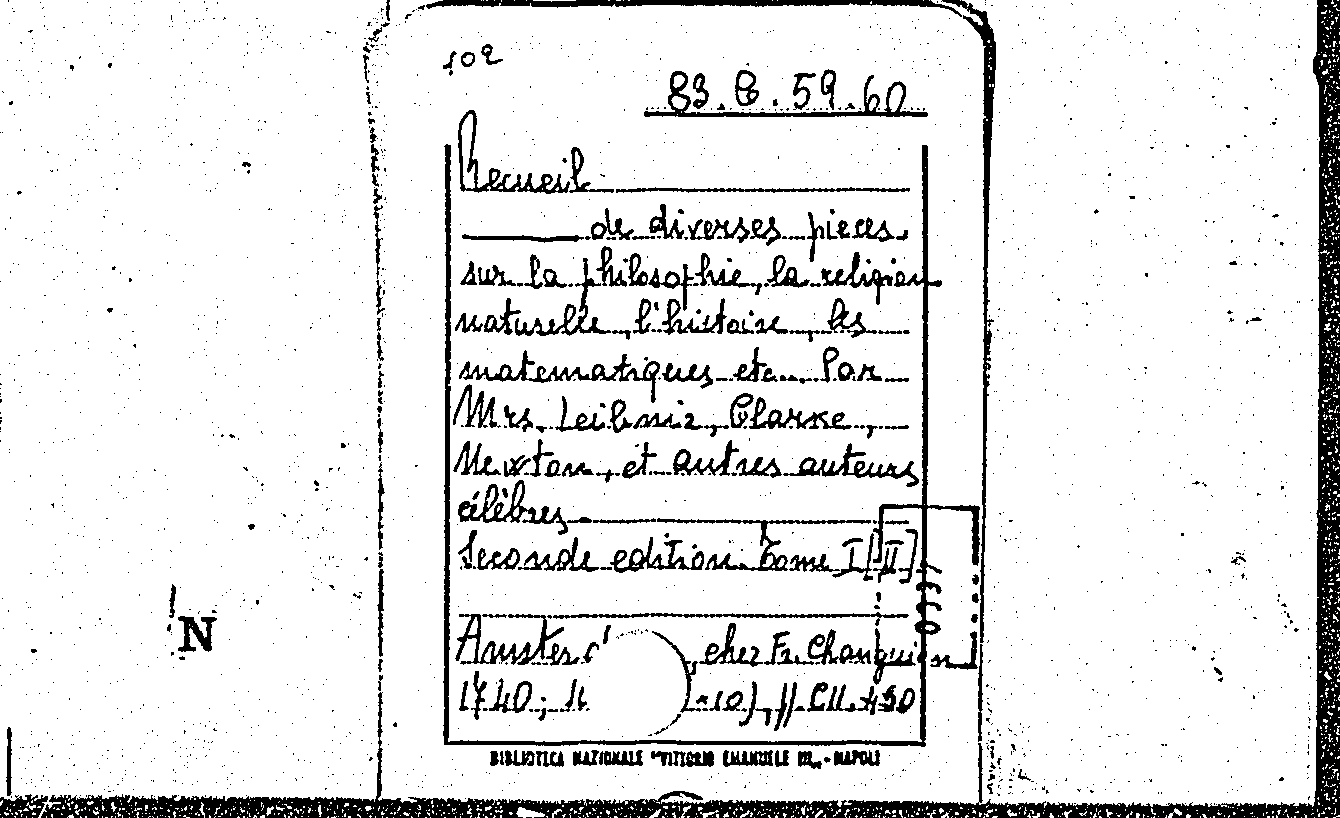 102
83.B.59.60
Recueil
de diverses pieces.
sur la philosophie, la religion
naturelle, l'histoire, les
matematiques etc... Par
Mrs. Leibniz, Clarke,
Newton, et autres auteurs
célèbres.
Seconde edition. Tome I[II]
Amster , chez Fr. Changuion
1740; 16
N
BIBLIOTECA NAZIONALE "VITTORIO EMANUELE III" - NAPOLI